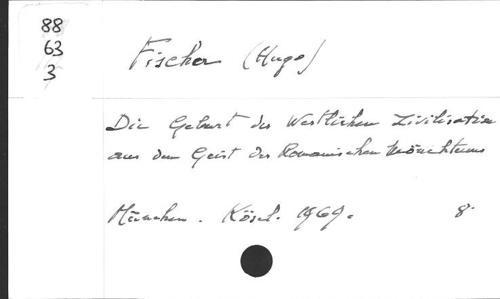 88
63
3
Fischer (Hugo)
Die Geburt der Westlichen Zivilisation
aus dem Geist des Romanischen Mönchtums
München. Kösel. 1969. 8°